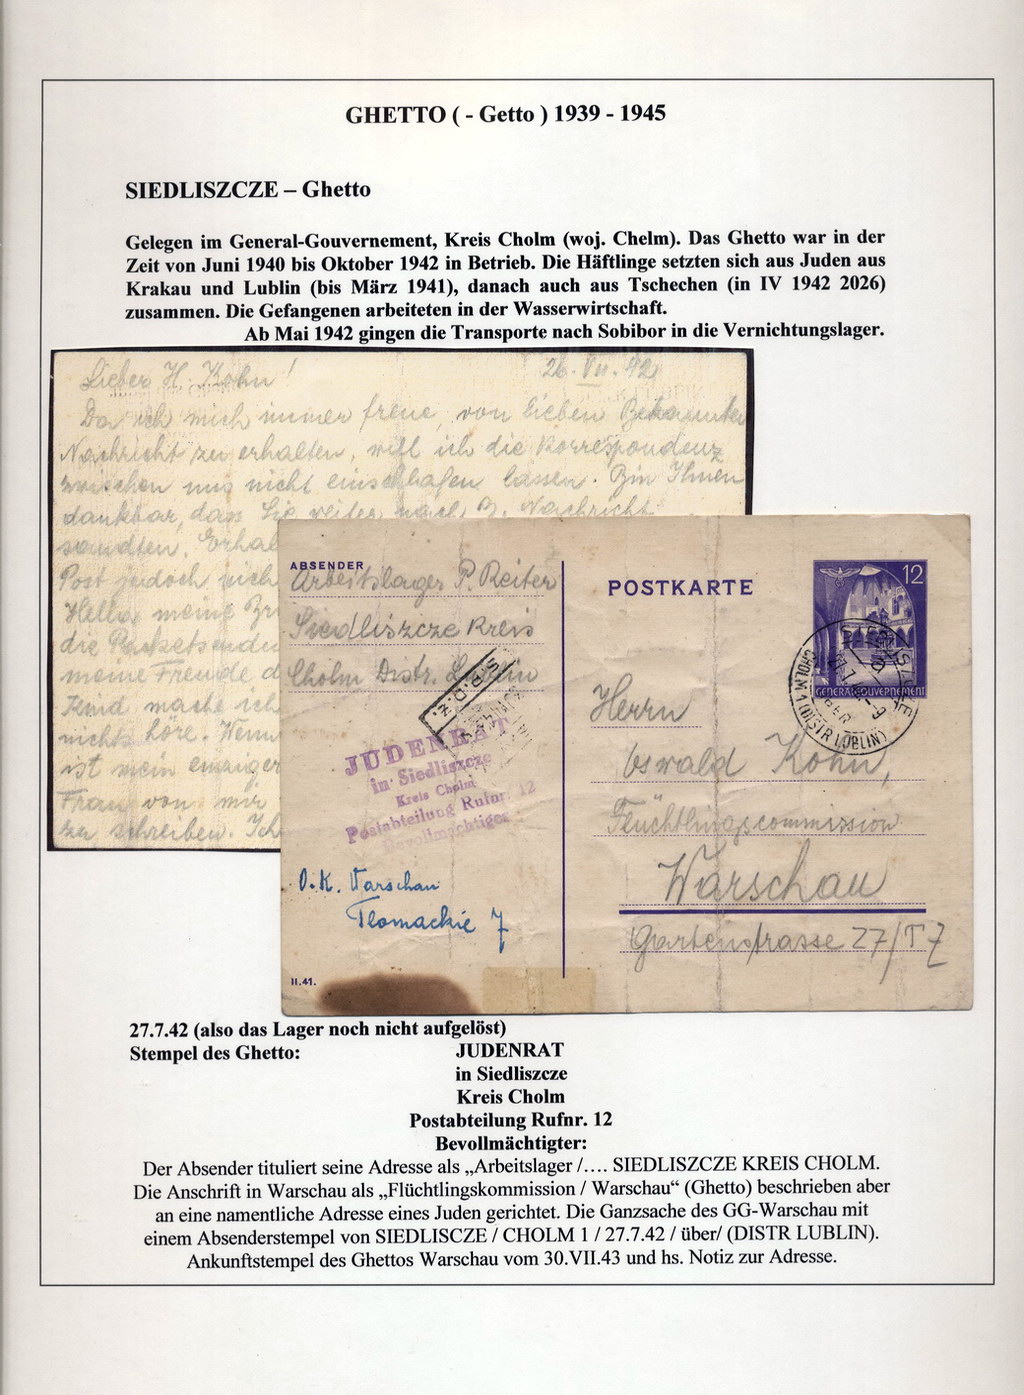 GHETTO ( - Getto ) 1939 - 1945
SIEDLISZCZE – Ghetto
Gelegen im General-Gouvernement, Kreis Cholm (woj. Chelm). Das Ghetto war in der
Zeit von Juni 1940 bis Oktober 1942 in Betrieb. Die Häftlinge setzten sich aus Juden aus
Krakau und Lublin (bis März 1941), danach auch aus Tschechen (in IV 1942 2026)
zusammen. Die Gefangenen arbeiteten in der Wasserwirtschaft.
Ab Mai 1942 gingen die Transporte nach Sobibor in die Vernichtungslager.
Lieber H. Kohn! 26. VII. 42
Da ich mich immer freue, von lieben Bekannten
Nachricht zu erhalten, will ich die Korrespondenz
zwischen uns nicht einschlafen lassen. Bin Ihnen
dankbar, dass Sie weiter nach B. Nachricht
sandten. Erhal
Post jedoch nich
Hella, meine Br
die Packetsendu
meine Freude d
Kind mache ich
nichts höre. Wenn
ist mein einziger
Frau von mir
zu schreiben. Ich
ABSENDER
Arbeitslager P. Reiter
Siedliszcze Kreis
Cholm Distr. Lublin
JUDENRAT
in Siedliszcze
Kreis Cholm
Postabteilung Rufnr. 12
Bevollmächtigter
O.K. Warschau
Tlomackie 7
II.41.
POSTKARTE
12
GENERALGOUVERNEMENT
CHOLM 1 (DISTR LUBLIN)
Herrn
Oswald Kohn,
Flüchtlingscommission
Warschau
Gartenstrasse 27/T7
27.7.42 (also das Lager noch nicht aufgelöst)
Stempel des Ghetto: JUDENRAT
in Siedliszcze
Kreis Cholm
Postabteilung Rufnr. 12
Bevollmächtigter:
Der Absender tituliert seine Adresse als „Arbeitslager /…. SIEDLISZCZE KREIS CHOLM.
Die Anschrift in Warschau als „Flüchtlingskommission / Warschau“ (Ghetto) beschrieben aber
an eine namentliche Adresse eines Juden gerichtet. Die Ganzsache des GG-Warschau mit
einem Absenderstempel von SIEDLISCZE / CHOLM 1 / 27.7.42 / über/ (DISTR LUBLIN).
Ankunftstempel des Ghettos Warschau vom 30.VII.43 und hs. Notiz zur Adresse.